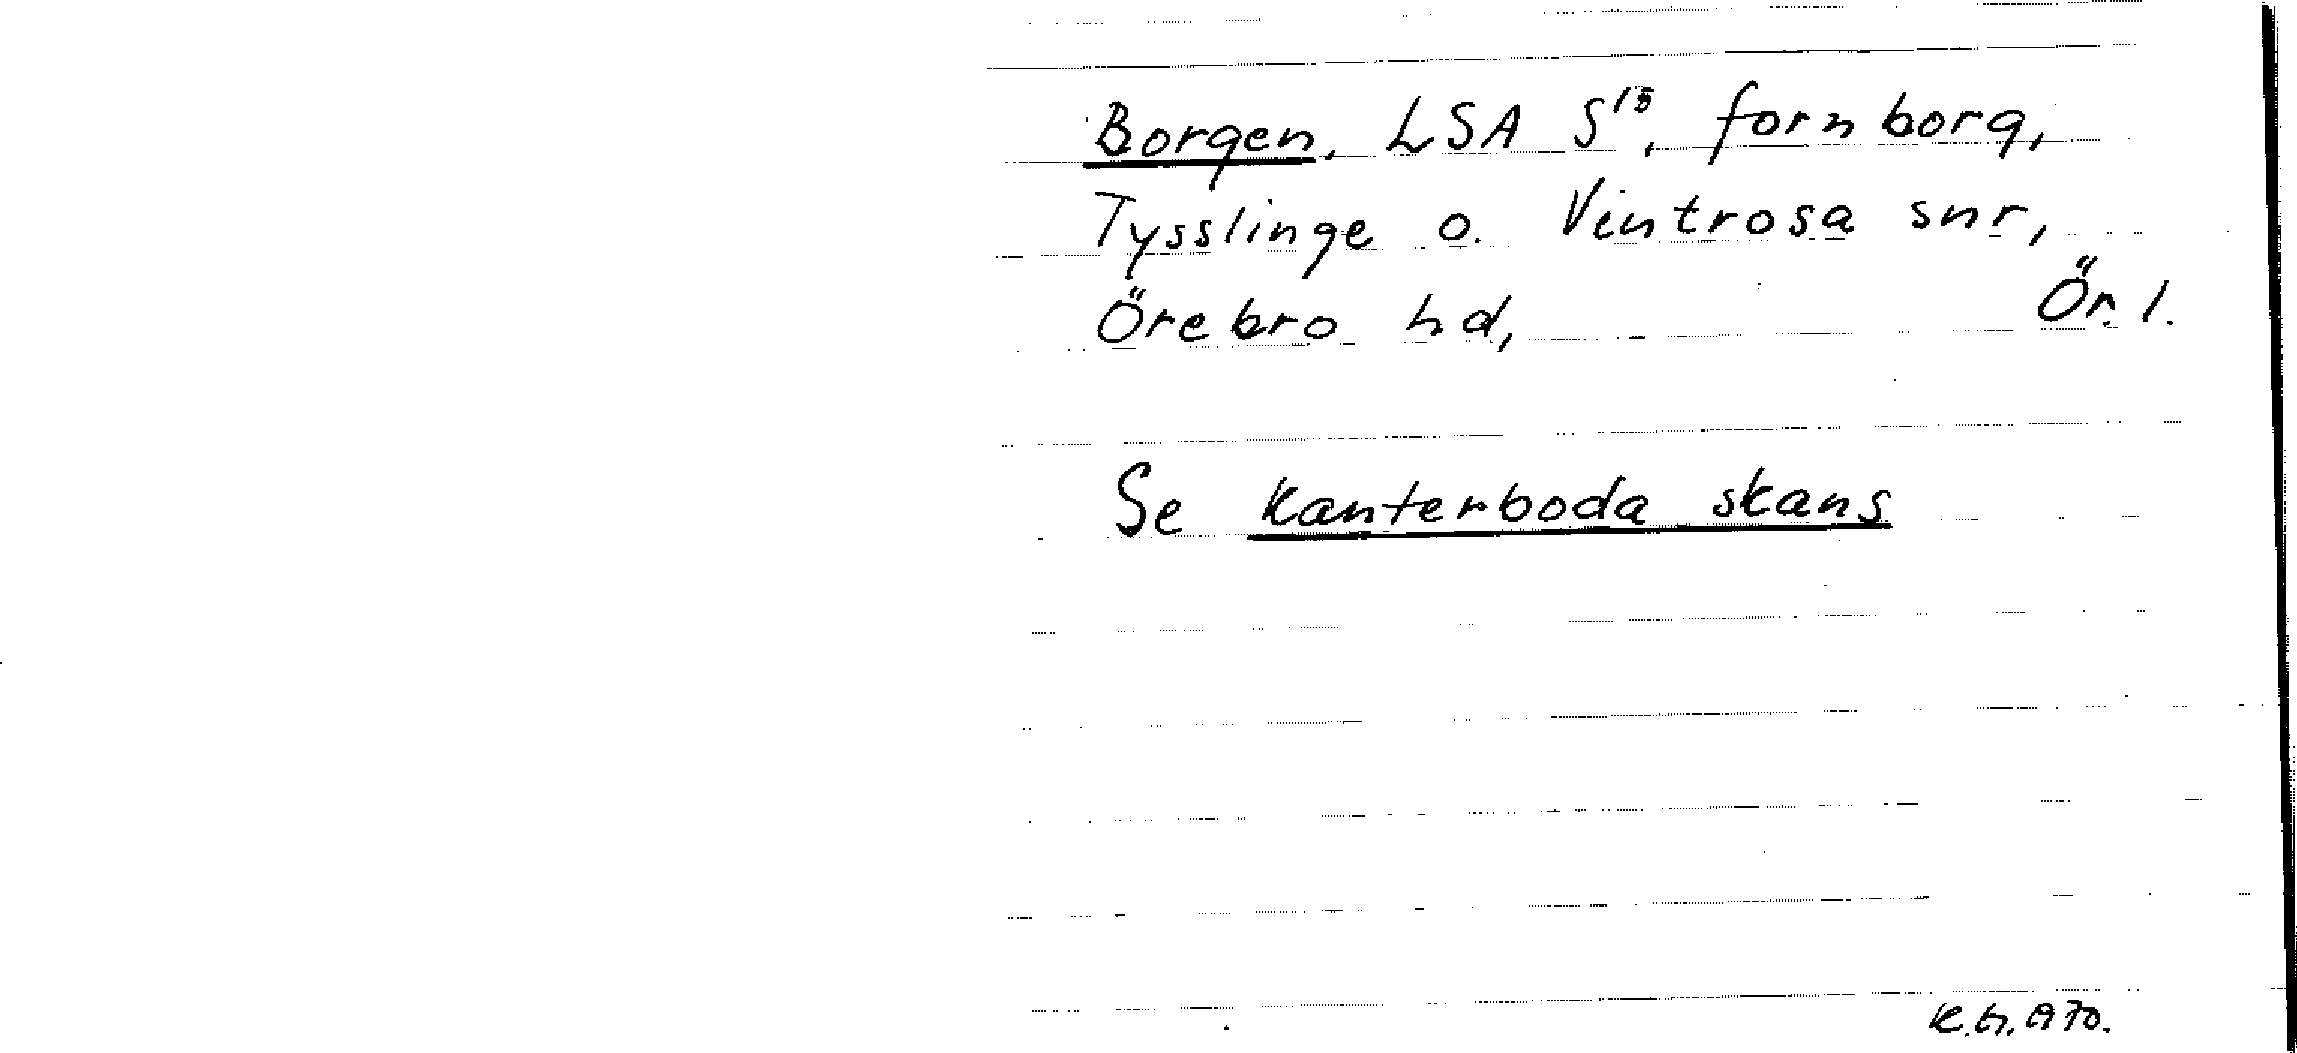 Borgen. LSA S¹⁵, fornborg,
Tysslinge o. Vintrosa snr,
Örebro hd, Ör. l.
Se Kanterboda skans